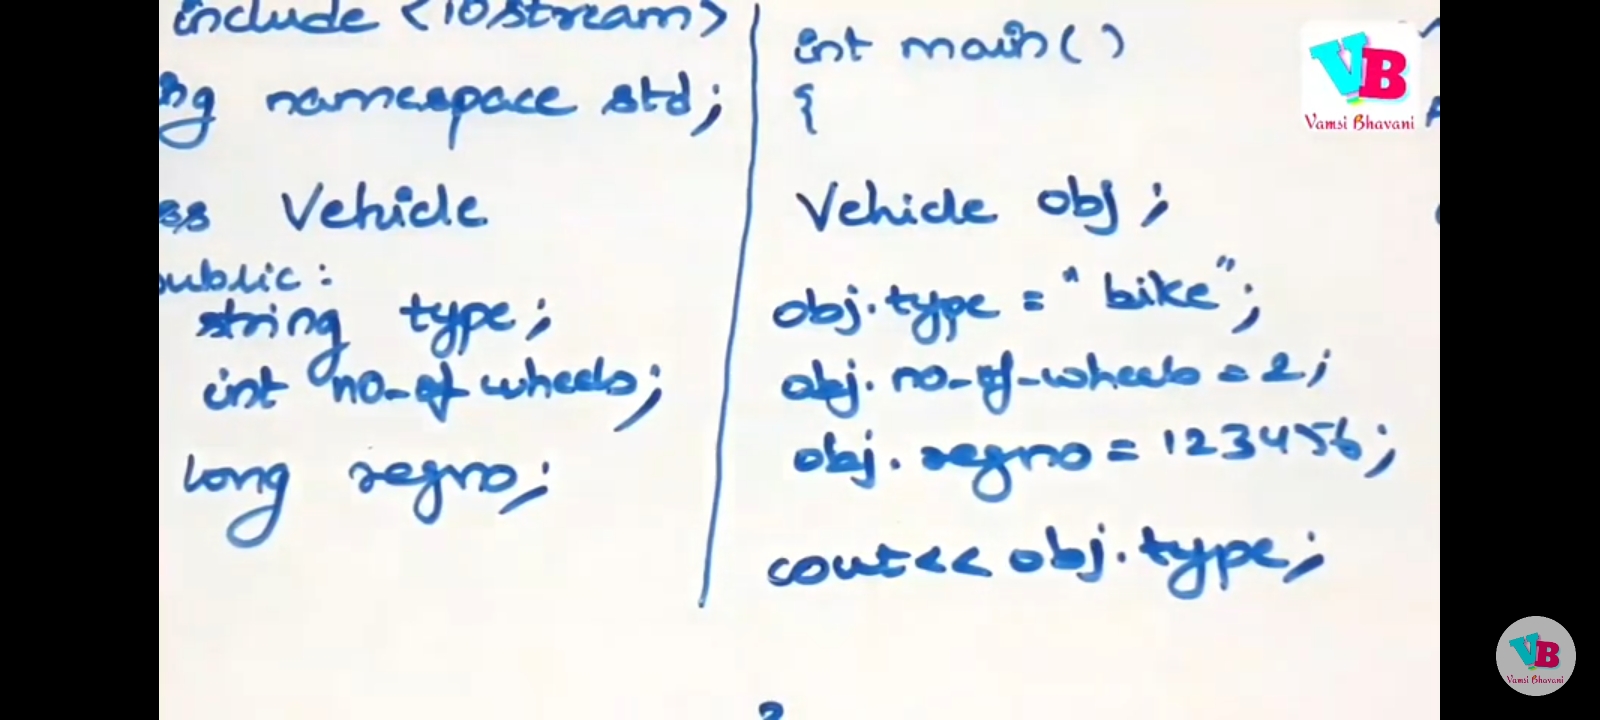 include <iostream>
ng namespace std;
ss Vehicle
public:
string type;
int no-of-wheels;
long regno;
int main()
{
Vehicle obj;
obj.type = "bike";
obj.no-of-wheels = 2;
obj.regno = 123456;
cout<< obj.type;
VB
Vamsi Bhavani
VB
Vamsi Bhavani